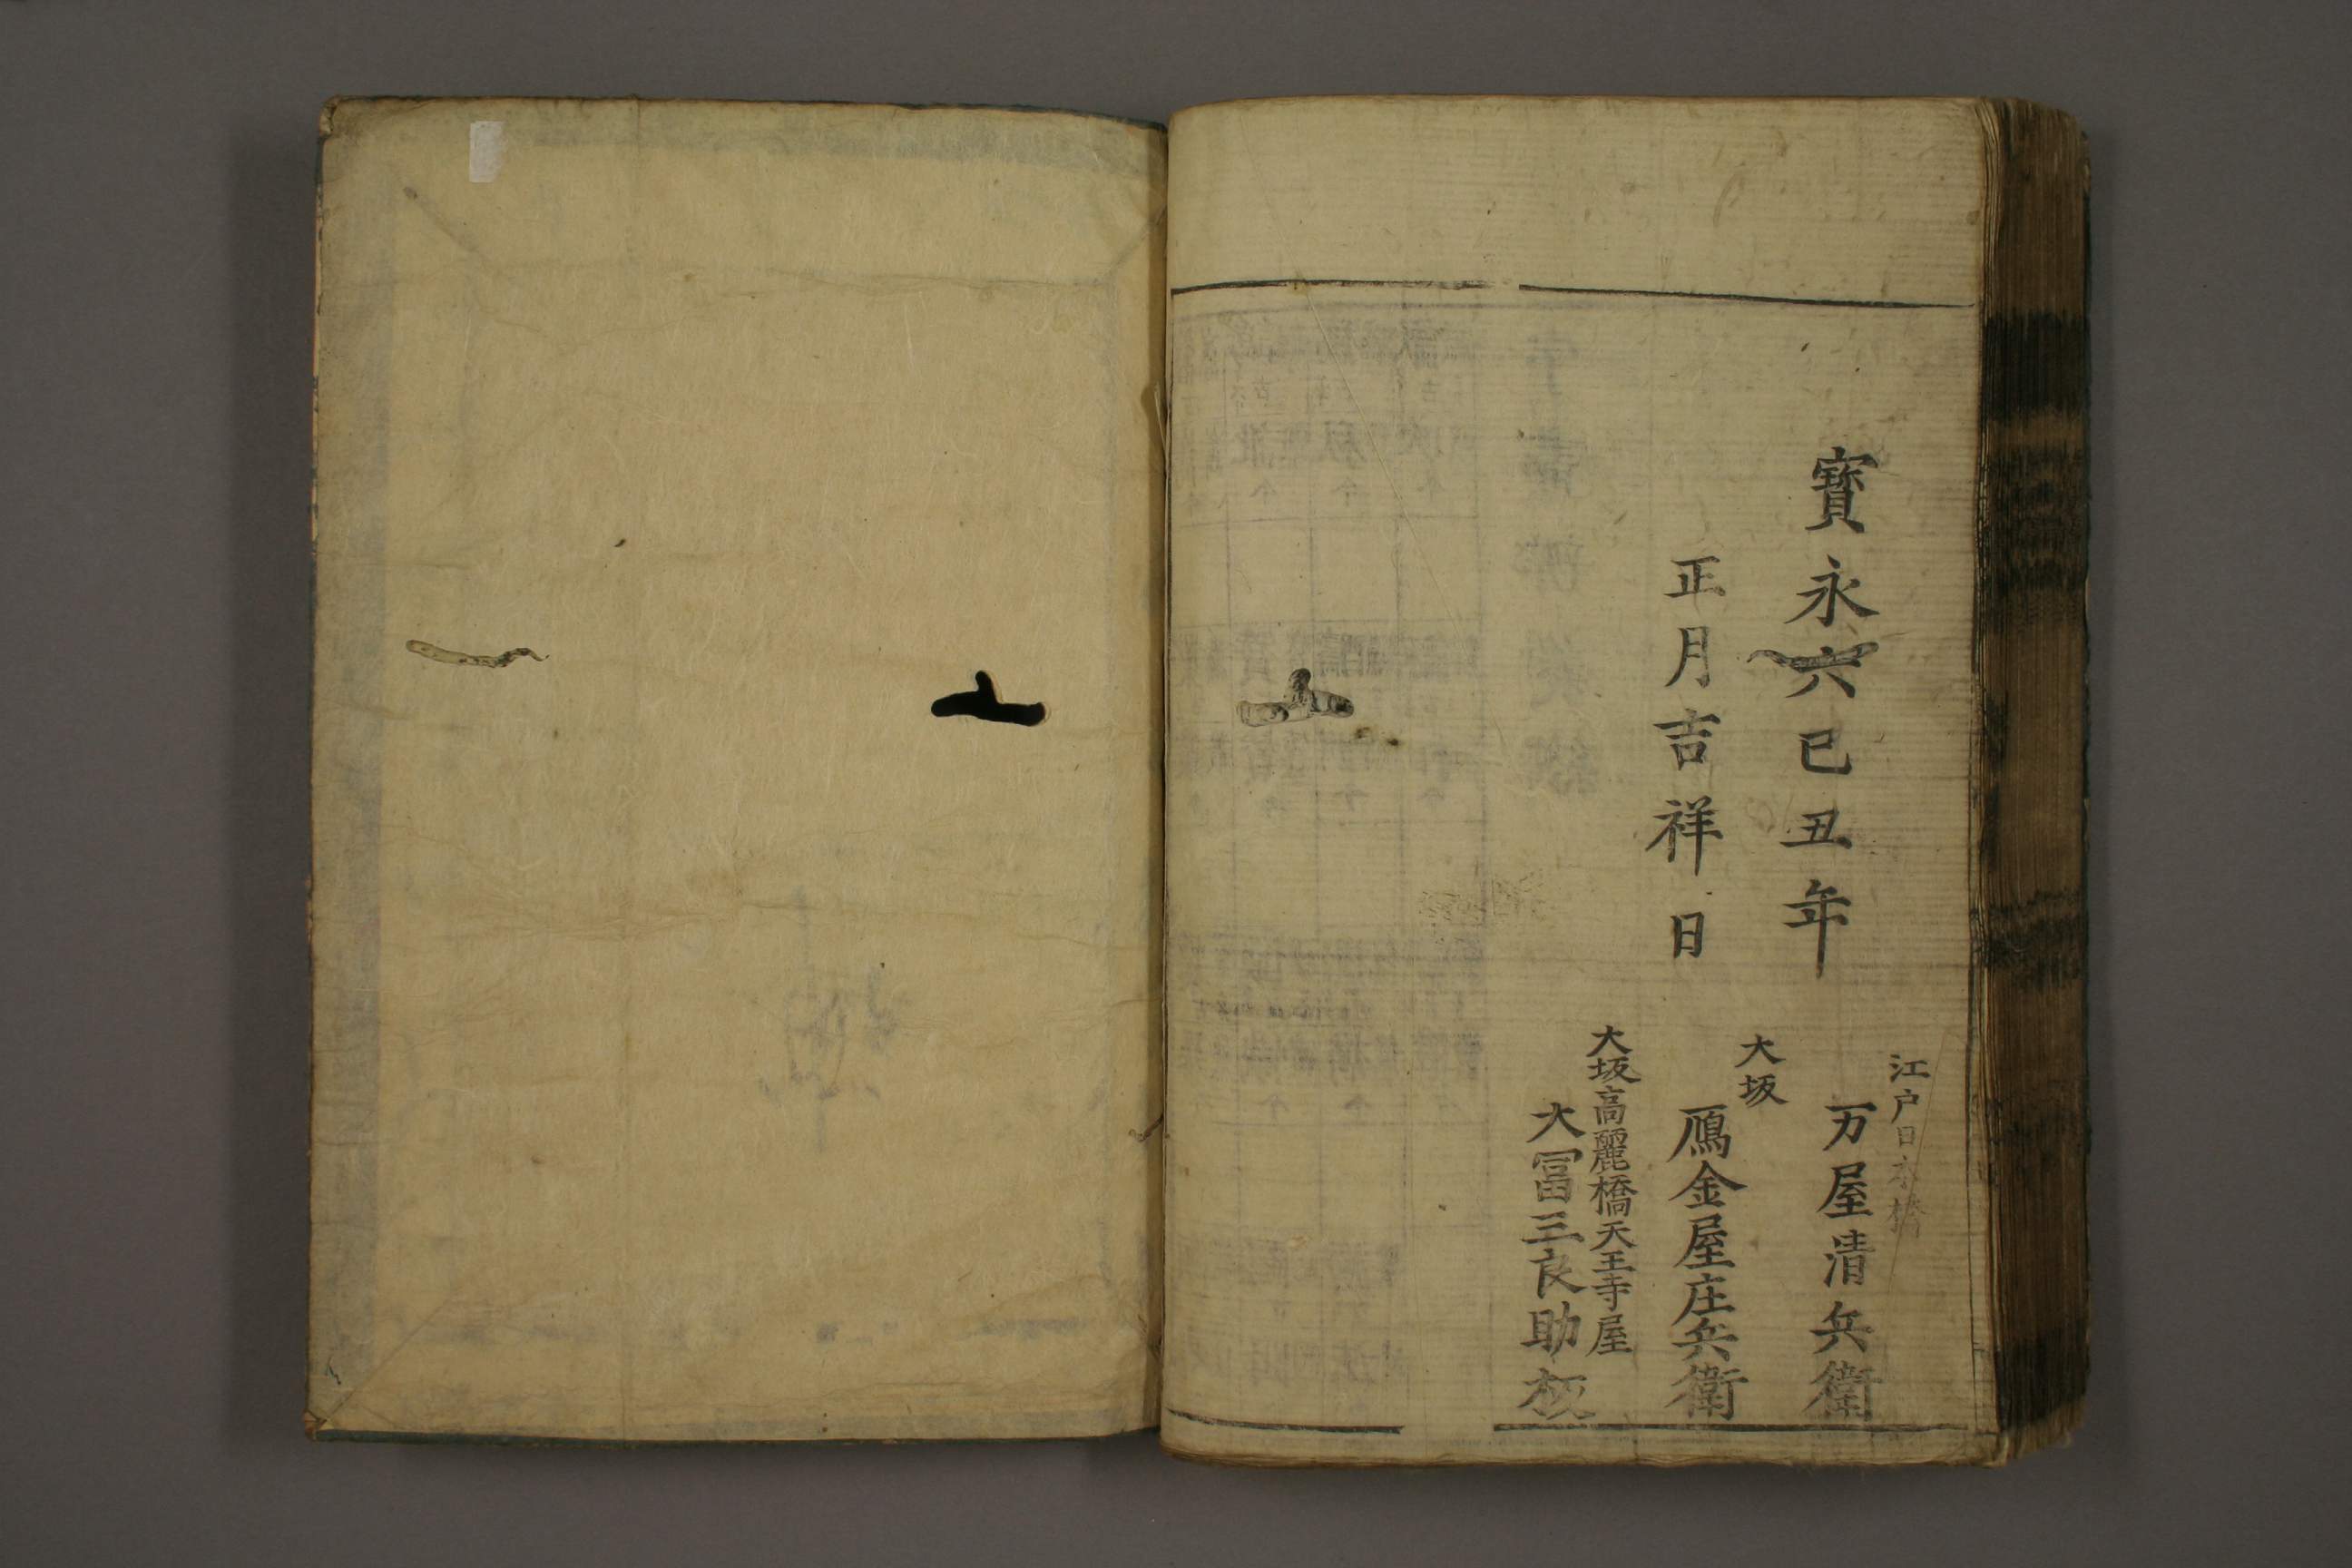 寳永六己丑年
正月吉祥日
江戸日本橋
万屋清兵衛
大坂
鴈金屋庄兵衛
大坂高麗橋天王寺屋
大冨三良助板